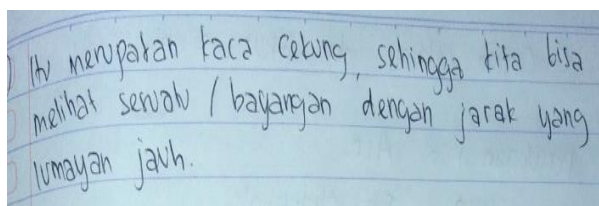 ) Itu merupakan kaca cekung, sehingga kita bisa
melihat sesuatu / bayangan dengan jarak yang
lumayan jauh.